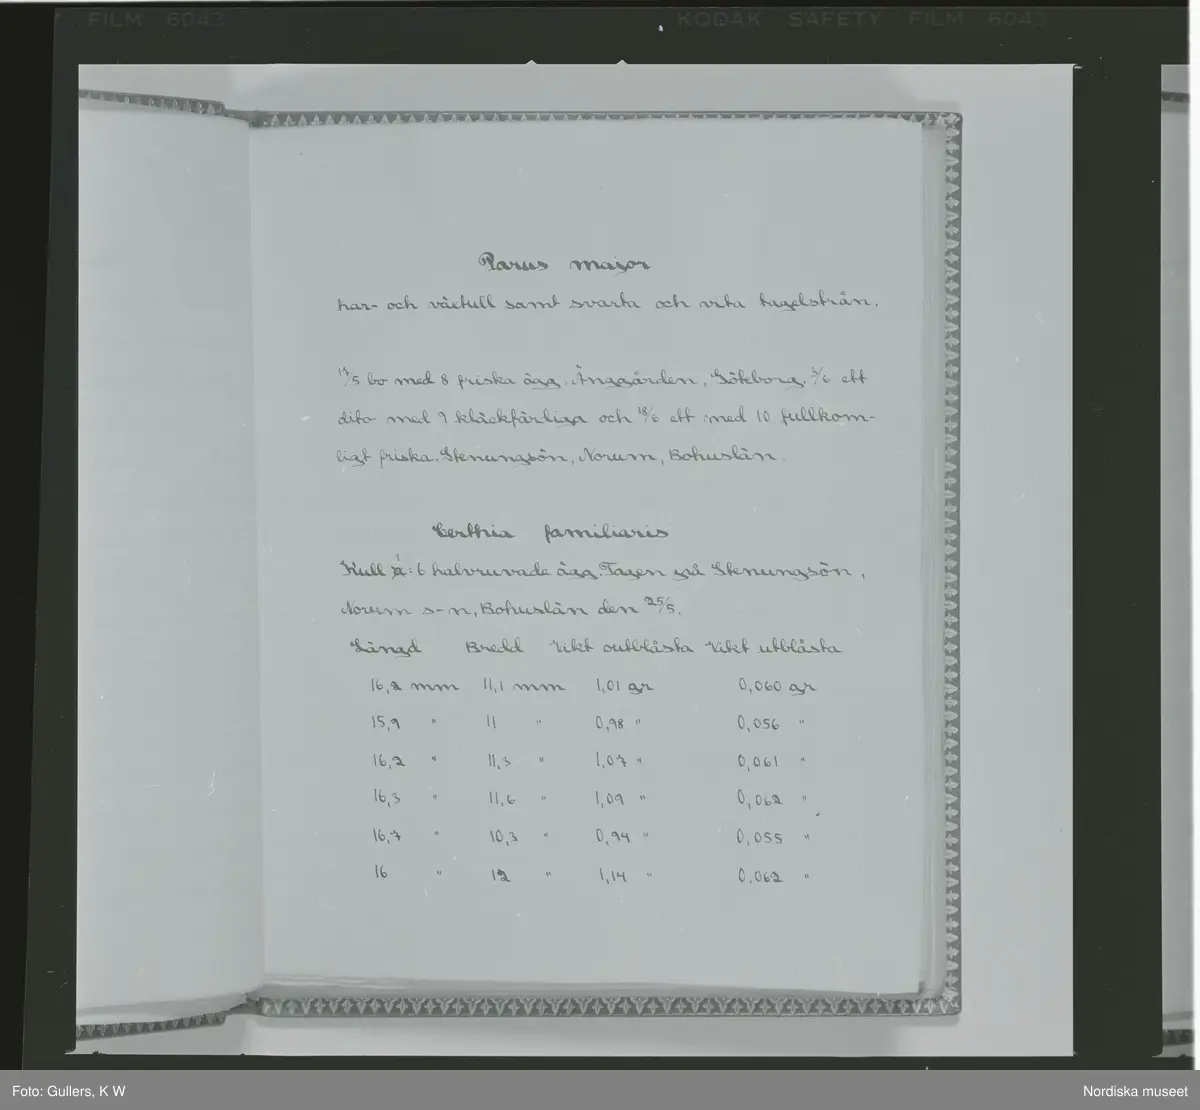 FILM 6043
KODAK SAFETY FILM 6043
Parus major
har- och växtull samt svarta och vita tagelstrån.
17/5 bo med 8 friska ägg. Änggården, Göteborg. 3/6 ett
dito med 9 kläckfärliga och 18/6 ett med 10 fullkom-
ligt friska. Stenungsön, Norum, Bohuslän.
Certhia familiaris
Kull 1: 6 halvruvade ägg. Tagen på Stenungsön,
Norum s-n, Bohuslän den 25/5.
Längd Bredd Vikt outblåsta Vikt utblåsta
16,2 mm 11,1 mm 1,01 gr 0,060 gr
15,9 " 11 " 0,98 " 0,056 "
16,2 " 11,3 " 1,07 " 0,061 "
16,3 " 11,6 " 1,09 " 0,062 "
16,7 " 10,3 " 0,94 " 0,055 "
16 " 12 " 1,14 " 0,062 "
Foto: Gullers, K W
Nordiska museet